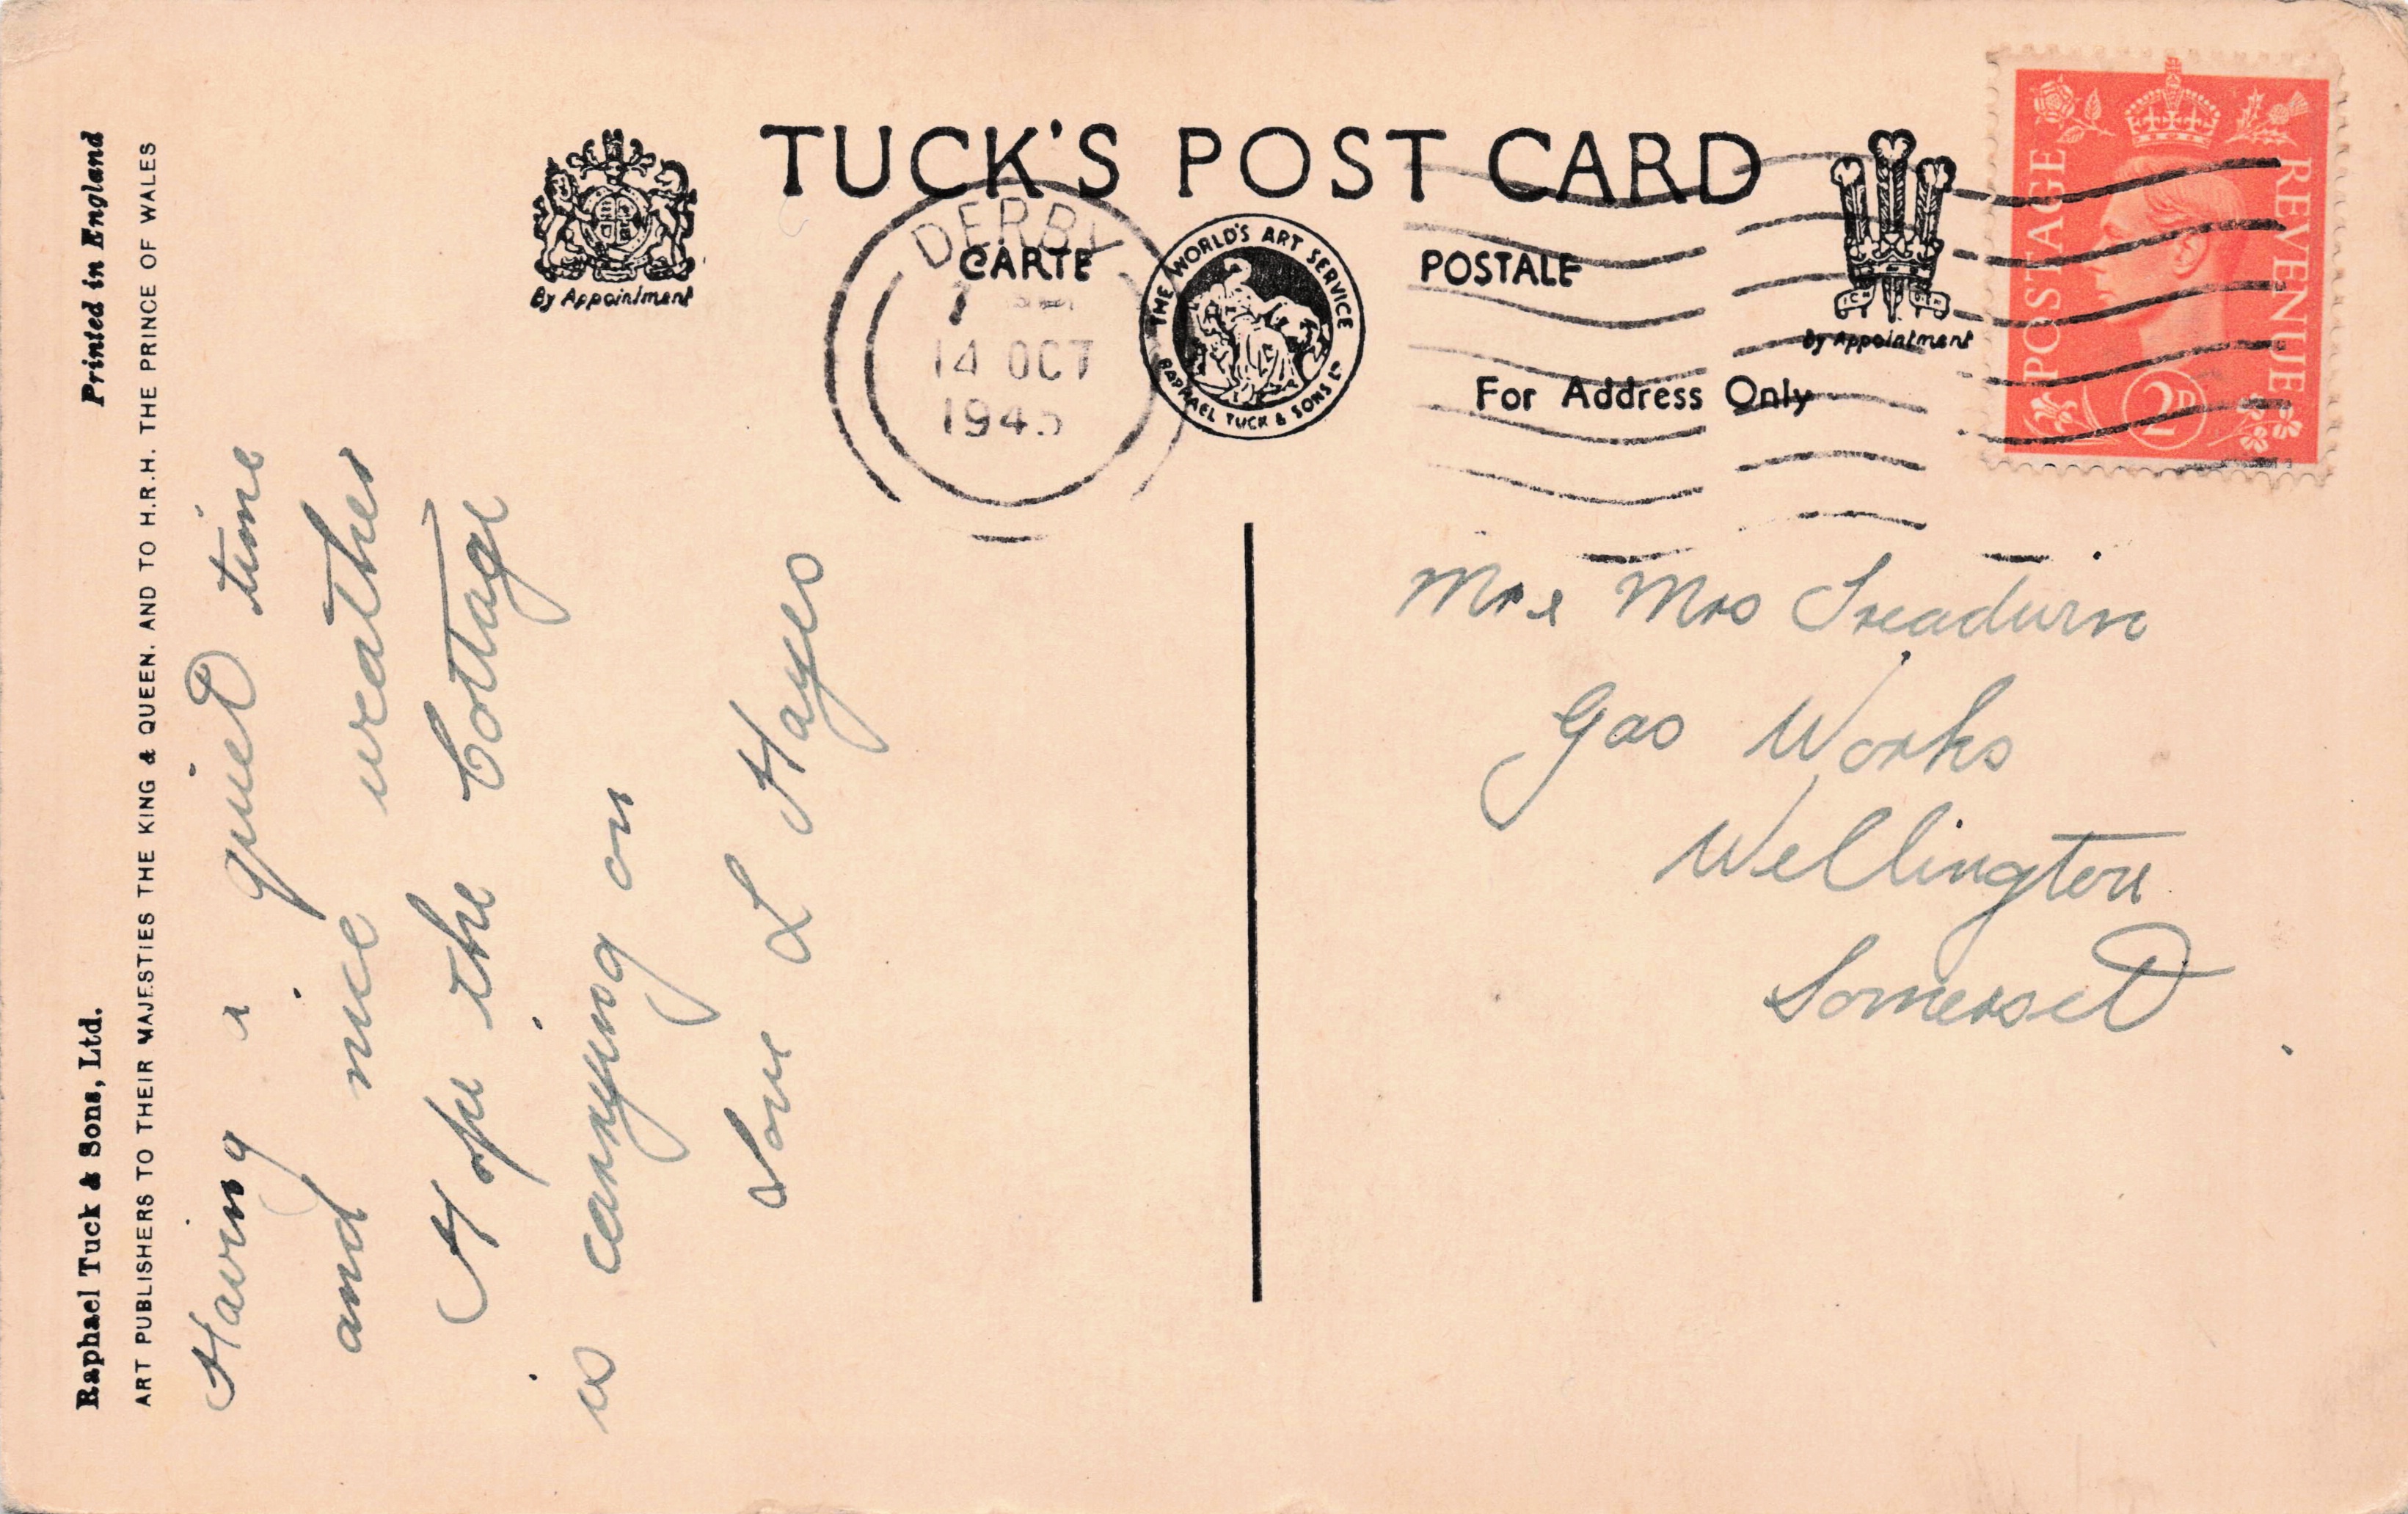 TUCK'S POST CARD
CARTE POSTALE
For Address Only
By Appointment
By Appointment
THE WORLD'S ART SERVICE
RAPHAEL TUCK & SONS LTD
DERBY
14 OCT
POSTAGE REVENUE
2D
Raphael Tuck & Sons, Ltd. Printed in England
ART PUBLISHERS TO THEIR MAJESTIES THE KING & QUEEN, AND TO H.R.H. THE PRINCE OF WALES
Having a quiet time
and nice weather
Hope the Cottage
is carrying on
Love L Hayes
Mr & Mrs
Gas Works
Wellington
Somerset